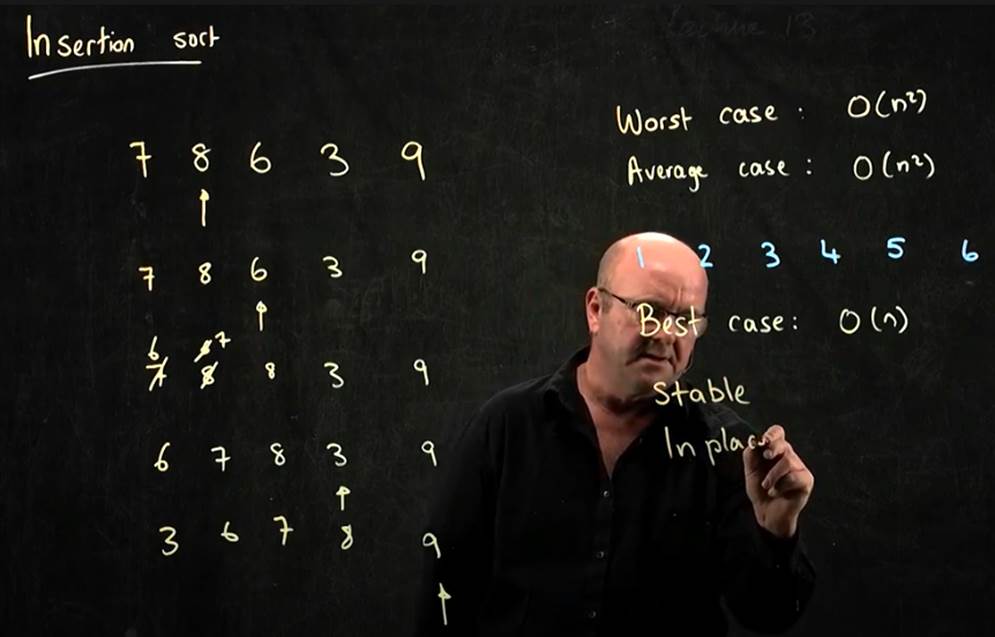 Insertion sort
7 8 6 3 9
7 8 6 3 9
6 7
7 8 8 3 9
6 7 8 3 9
3 6 7 8 9
Worst case : O(n²)
Average case : O(n²)
1 2 3 4 5 6
Best case: O(n)
Stable
In plac